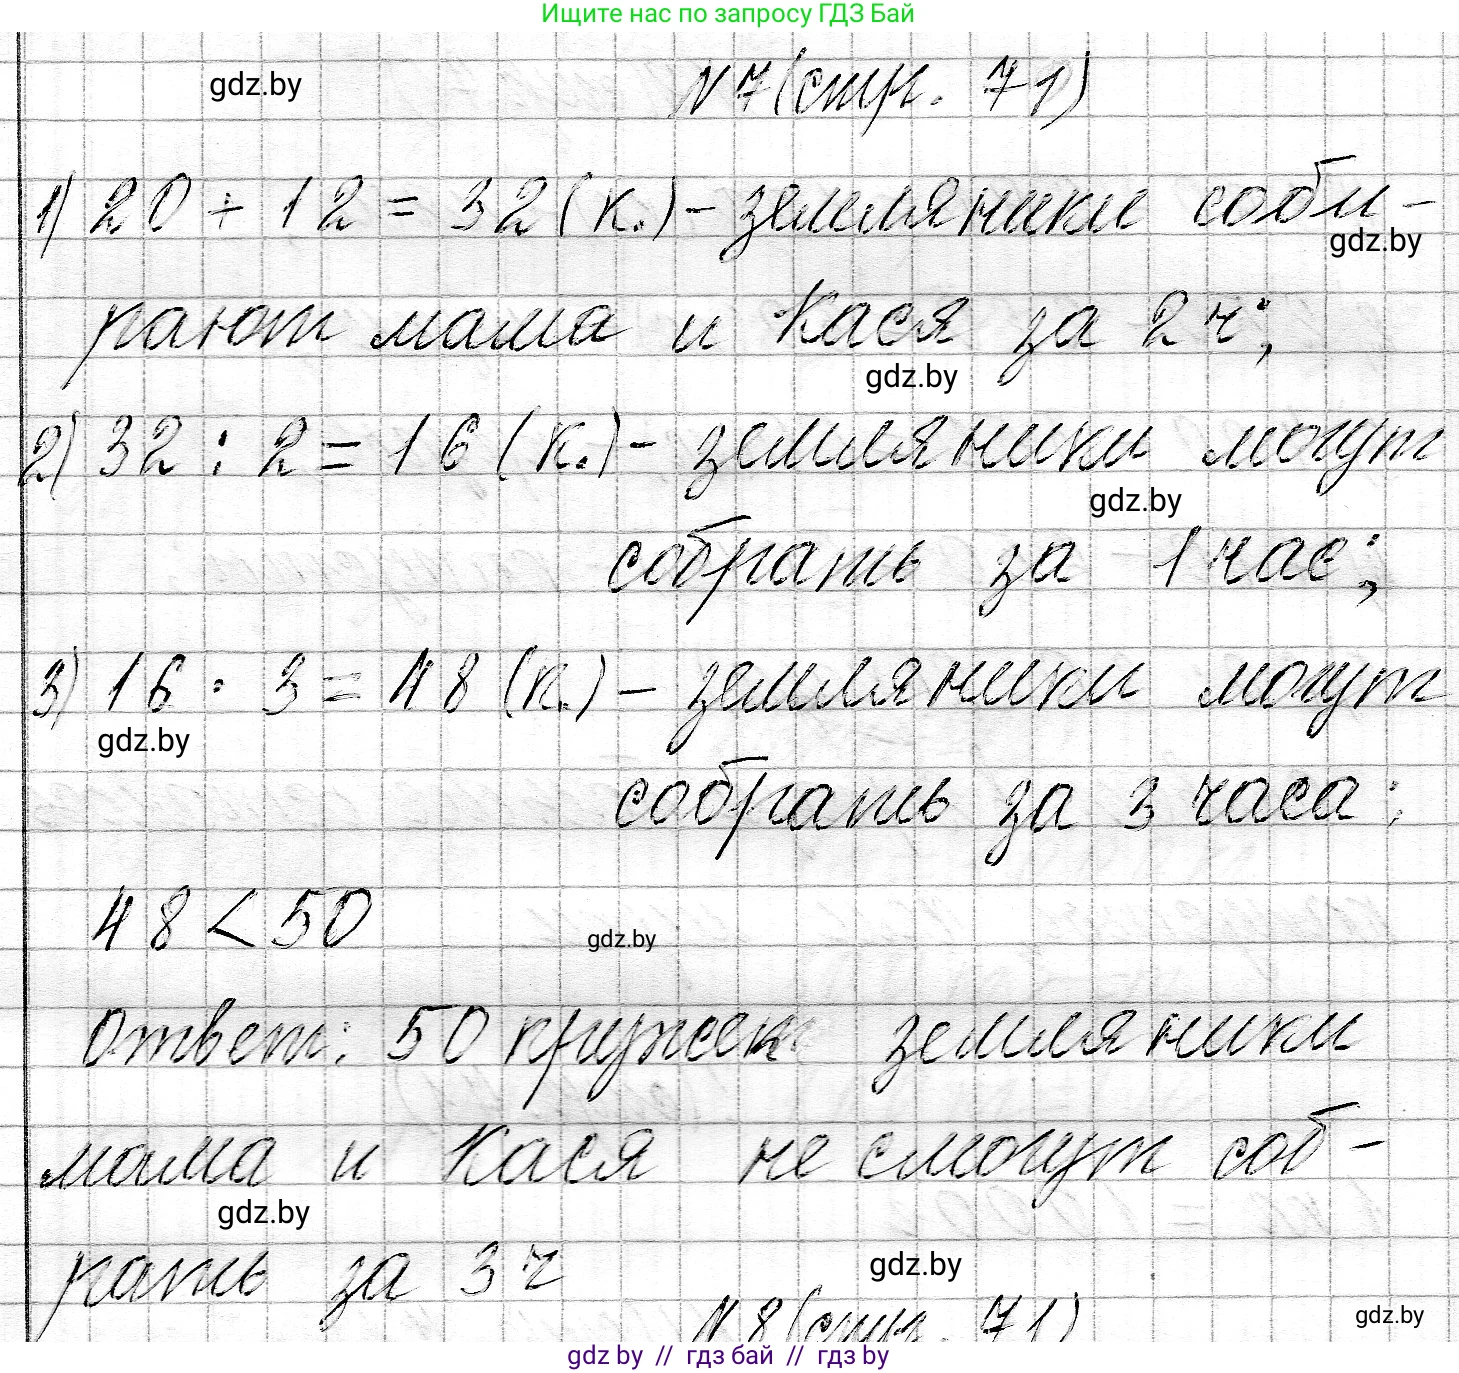 Ищите нас по запросу ГДЗ Бай
gdz.by
N7 (стр. 71)
1) 20 + 12 = 32 (к.) - земляники соби -
gdz.by
рают мама и Кася за 2 ч;
gdz.by
2) 32 : 2 = 16 (к.) - земляники могут
gdz.by
собрать за 1 час;
3) 16 · 3 = 48 (к.) - земляники могут
gdz.by
собрать за 3 часа;
48 < 50
gdz.by
Ответ: 50 кружек земляники
мама и Кася не смогут соб -
gdz.by
рать за 3 ч
gdz.by
N8 (стр. 71)
gdz.by
gdz by // гдз бай // гдз by